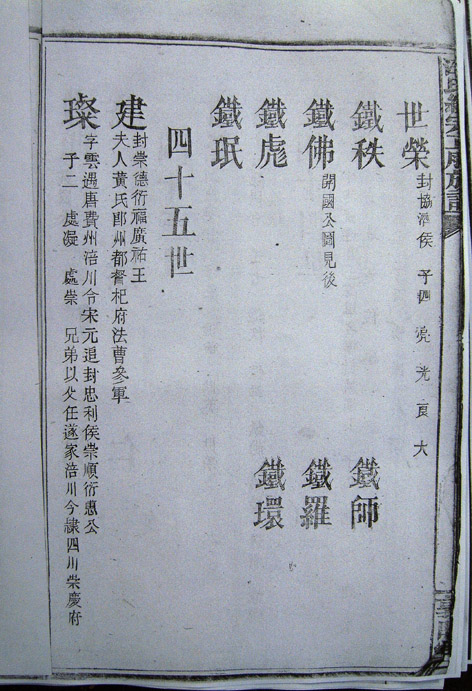 世榮 封協濟侯 子四 亮 光 頁 大
鐵秩 鐵師
鐵佛 開國公圖見後 鐵羅
鐵彪 鐵環
鐵珉
四十五世
建 封崇德衍福廣祐王
夫人黃氏郎州都督杞府法曹參軍
璨 字雲遇唐費州涪川令宋元追封忠利侯崇順衍惠公
子二 處漫 處崇 兄弟以父任遂家涪川今隸四川崇慶府